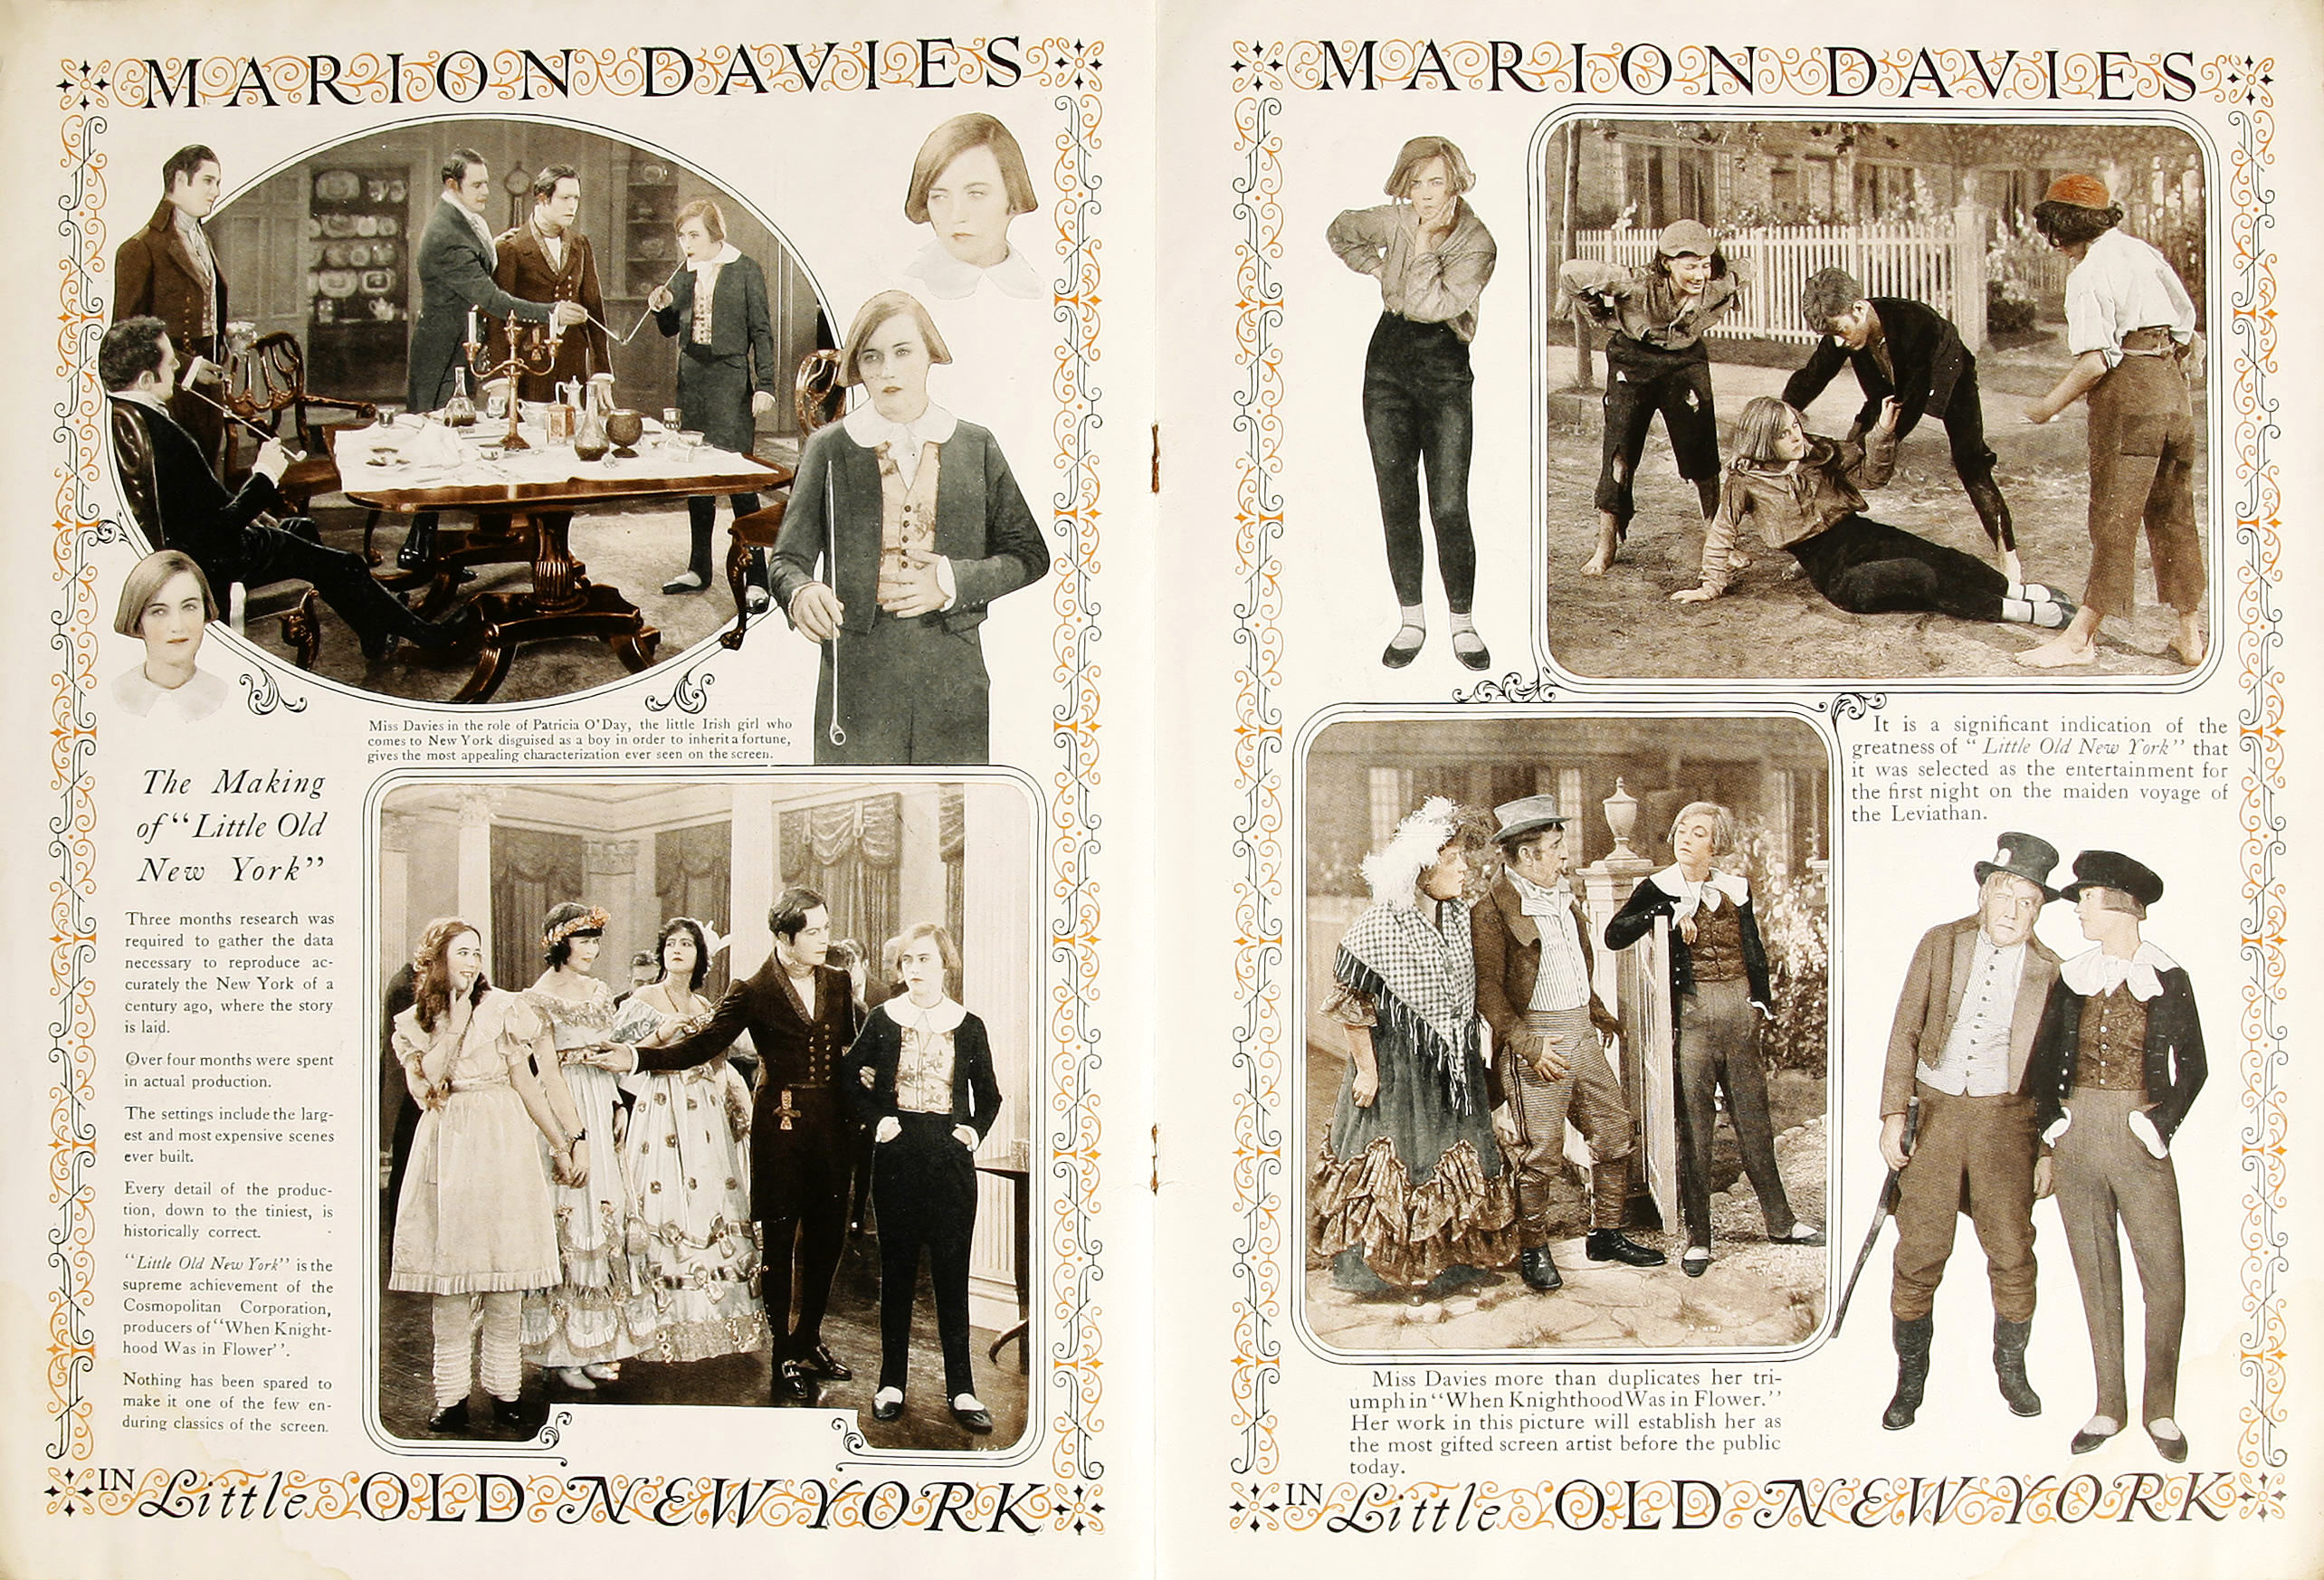 MARION DAVIES
Miss Davies in the role of Patricia O'Day, the little Irish girl who
comes to New York disguised as a boy in order to inherit a fortune,
gives the most appealing characterization ever seen on the screen.
The Making
of "Little Old
New York"
Three months research was
required to gather the data
necessary to reproduce ac-
curately the New York of a
century ago, where the story
is laid.
Over four months were spent
in actual production.
The settings include the larg-
est and most expensive scenes
ever built.
Every detail of the produc-
tion, down to the tiniest, is
historically correct.
"Little Old New York" is the
supreme achievement of the
Cosmopolitan Corporation,
producers of "When Knight-
hood Was in Flower".
Nothing has been spared to
make it one of the few en-
during classics of the screen.
IN Little OLD NEW YORK
MARION DAVIES
It is a significant indication of the
greatness of "Little Old New York" that
it was selected as the entertainment for
the first night on the maiden voyage of
the Leviathan.
Miss Davies more than duplicates her tri-
umph in "When Knighthood Was in Flower."
Her work in this picture will establish her as
the most gifted screen artist before the public
today.
IN Little OLD NEW YORK